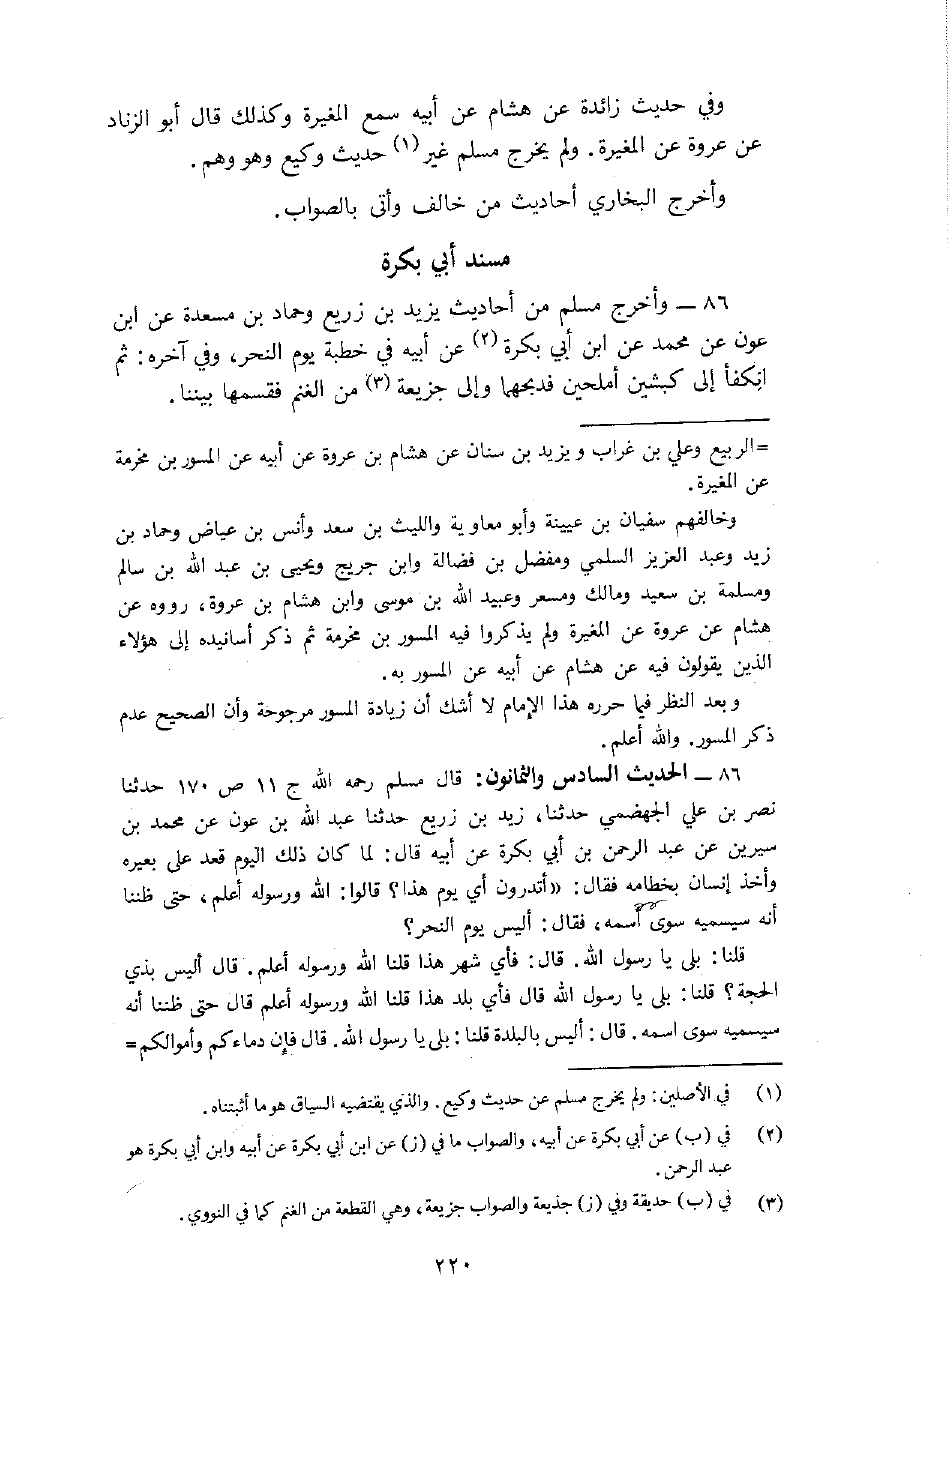 وفي حديث زائدة عن هشام عن أبيه سمع المغيرة وكذلك قال أبو الزناد
عن عروة عن المغيرة. ولم يخرج مسلم غير (١) حديث وكيع وهو وهم.
وأخرج البخاري أحاديث من خالف وأتى بالصواب.
مسند أبي بكرة
٨٦ ــ وأخرج مسلم من أحاديث يزيد بن زريع وحماد بن مسعدة عن ابن
عون عن محمد عن ابن أبي بكرة (٢) عن أبيه في خطبة يوم النحر، وفي آخره: ثم
انكفأ إلى كبشين أملحين فذبحهما وإلى جزيعة (٣) من الغنم فقسمها بيننا.
=الربيع وعلي بن غراب ويزيد بن سنان عن هشام بن عروة عن أبيه عن المسور بن مخرمة
عن المغيرة.
وخالفهم سفيان بن عيينة وأبو معاوية والليث بن سعد وأنس بن عياض وحماد بن
زيد وعبد العزيز السلمي ومفضل بن فضالة وابن جريج ويحيى بن عبد الله بن سالم
ومسلمة بن سعيد ومالك ومسعر وعبيد الله بن موسى وابن هشام بن عروة، رووه عن
هشام عن عروة عن المغيرة ولم يذكروا فيه المسور بن مخرمة ثم ذكر أسانيده إلى هؤلاء
الذين يقولون فيه عن هشام عن أبيه عن المسور به.
وبعد النظر فيما حرره هذا الإمام لا أشك أن زيادة المسور مرجوحة وأن الصحيح عدم
ذكر المسور. والله أعلم.
٨٦ ــ الحديث السادس والثمانون: قال مسلم رحمه الله ج ١١ ص ١٧٠ حدثنا
نصر بن علي الجهضمي حدثنا، زيد بن زريع حدثنا عبد الله بن عون عن محمد بن
سيرين عن عبد الرحمن بن أبي بكرة عن أبيه قال: لما كان ذلك اليوم قعد على بعيره
وأخذ إنسان بخطامه فقال: «أتدرون أي يوم هذا؟ قالوا: الله ورسوله أعلم، حتى ظننا
أنه سيسميه سوى أسمه، فقال: أليس يوم النحر؟
قلنا: بلى يا رسول الله. قال: فأي شهر هذا قلنا الله ورسوله أعلم. قال أليس بذي
الحجة؟ قلنا: بلى يا رسول الله قال فأي بلد هذا قلنا الله ورسوله أعلم قال حتى ظننا أنه
سيسميه سوى اسمه. قال: أليس بالبلدة قلنا: بلى يا رسول الله. قال فإن دماءكم وأموالكم=
(١) في الأصلين: ولم يخرج مسلم عن حديث وكيع. والذي يقتضيه السياق هو ما أثبتناه.
(٢) في (ب) عن أبي بكرة عن أبيه، والصواب ما في (ز) عن ابن أبي بكرة عن أبيه وابن أبي بكرة هو
عبد الرحمن.
(٣) في (ب) حديقة وفي (ز) جذيعة والصواب جزيعة، وهي القطعة من الغنم كما في النووي.
٢٢٠